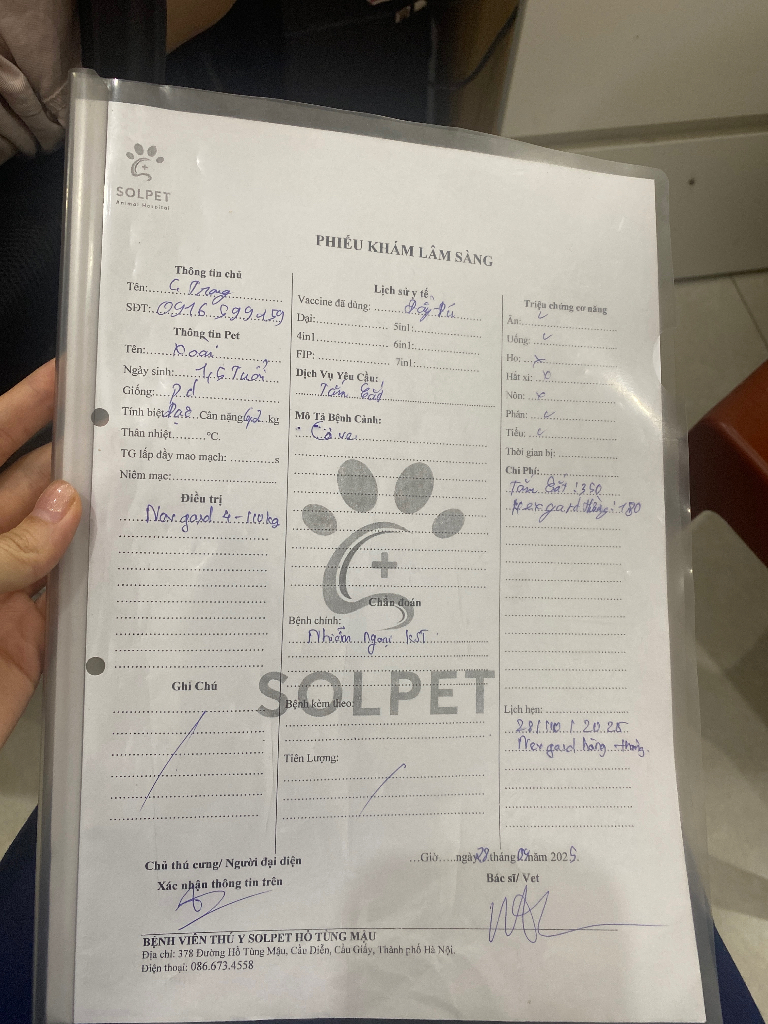 SOLPET
Animal Hospital
PHIẾU KHÁM LÂM SÀNG
Thông tin chủ
Tên: C. Trang
SĐT: 0916 899159
Thông tin Pet
Tên: Xoài
Ngày sinh: 1,6 Tuổi
Giống: P.d
Tính biệt: Cân nặng 6,2 kg
Thân nhiệt.........°C.
TG lấp đầy mao mạch: ............s
Niêm mạc:
Điều trị
Nexgard 4-10kg
Ghi Chú
Lịch sử y tế
Vaccine đã dùng: Đầy đủ
Dại: 5in1:
4in1 6in1:
FIP: 7in1:
Dịch Vụ Yêu Cầu:
Tắm Cắt
Mô Tả Bệnh Cảnh:
Có ve
Chẩn đoán
Bệnh chính:
Nhiễm ngoại KST
SOLPET
Bệnh kèm theo:
Tiên Lượng:
Triệu chứng cơ năng
Ăn: ✓
Uống: ✓
Ho: x
Hắt xì: x
Nôn: x
Phân: ✓
Tiểu: ✓
Thời gian bị:
Chi Phí:
Tắm Cắt: 350
Nexgard tháng: 180
Lịch hẹn:
28/10/2025
Nexgard hàng tháng.
Chủ thú cưng/ Người đại diện
Xác nhận thông tin trên
...Giờ......ngày 28 tháng 09 năm 2025.
Bác sĩ/ Vet
BỆNH VIỆN THÚ Y SOLPET HỒ TÙNG MẬU
Địa chỉ: 378 Đường Hồ Tùng Mậu, Cầu Diễn, Cầu Giấy, Thành phố Hà Nội.
Điện thoại: 086.673.4558